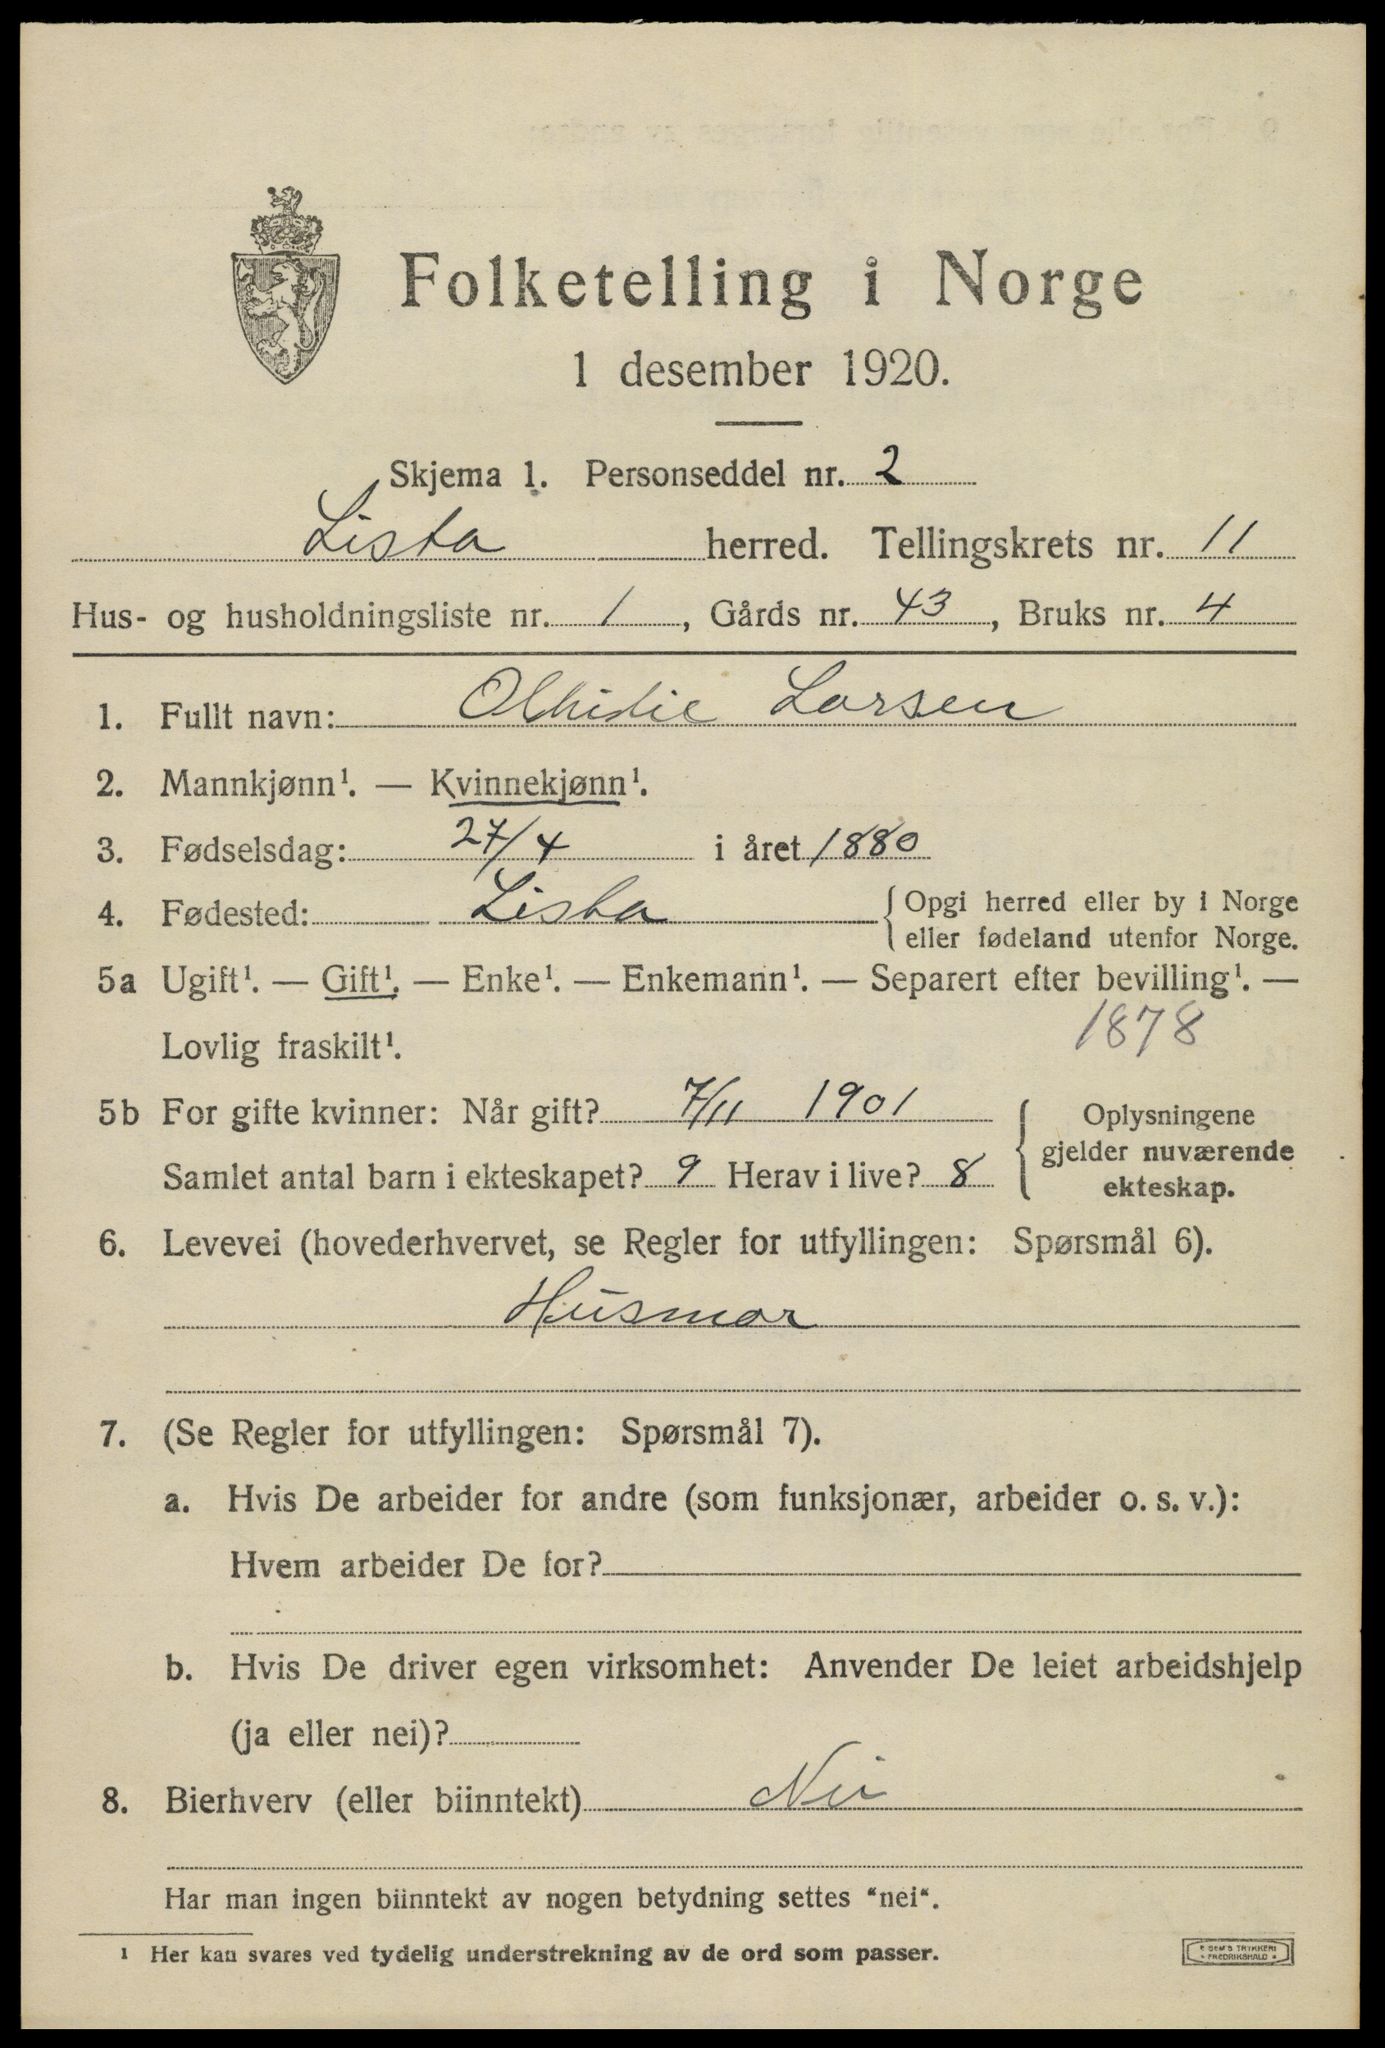 Folketelling i Norge
1 desember 1920.
Skjema 1. Personseddel nr. 2
Lista herred. Tellingskrets nr. 11
Hus- og husholdningsliste nr. 1, Gårds nr. 43, Bruks nr. 4
1. Fullt navn: Larsen
2. Mannkjønn¹. — Kvinnekjønn¹.
3. Fødselsdag: 27/4 i året 1880
4. Fødested: Lista { Opgi herred eller by i Norge
eller fødeland utenfor Norge.
5a Ugift¹. — Gift¹. — Enke¹. — Enkemann¹. — Separert efter bevilling¹. —
Lovlig fraskilt¹. 1878
5b For gifte kvinner: Når gift? 7/11 1901 { Oplysningene
gjelder nuværende
Samlet antal barn i ekteskapet? 9 Herav i live? 8 ekteskap.
6. Levevei (hovederhvervet, se Regler for utfyllingen: Spørsmål 6).
Husmor
7. (Se Regler for utfyllingen: Spørsmål 7).
a. Hvis De arbeider for andre (som funksjonær, arbeider o. s. v.):
Hvem arbeider De for?
b. Hvis De driver egen virksomhet: Anvender De leiet arbeidshjelp
(ja eller nei)?
8. Bierhverv (eller biinntekt) Nei
Har man ingen biinntekt av nogen betydning settes "nei".
¹ Her kan svares ved tydelig understrekning av de ord som passer.
E SEM'S TRYKKERI
* FREDRIKSHALD *